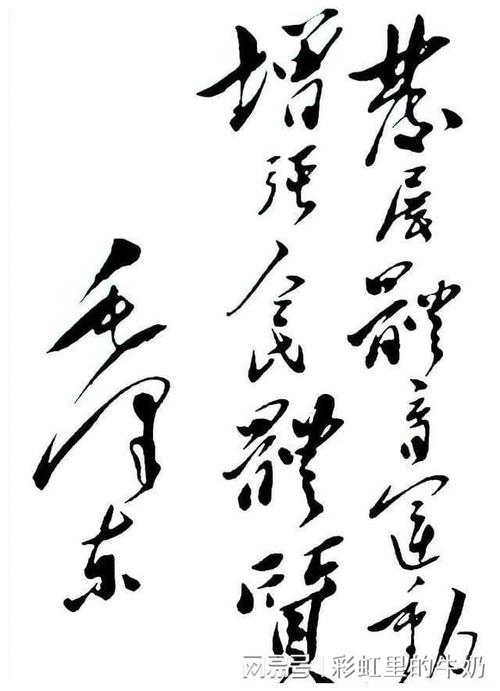 發展體育運動
增强人民體質
毛泽东
网易号 | 彩虹里的牛奶